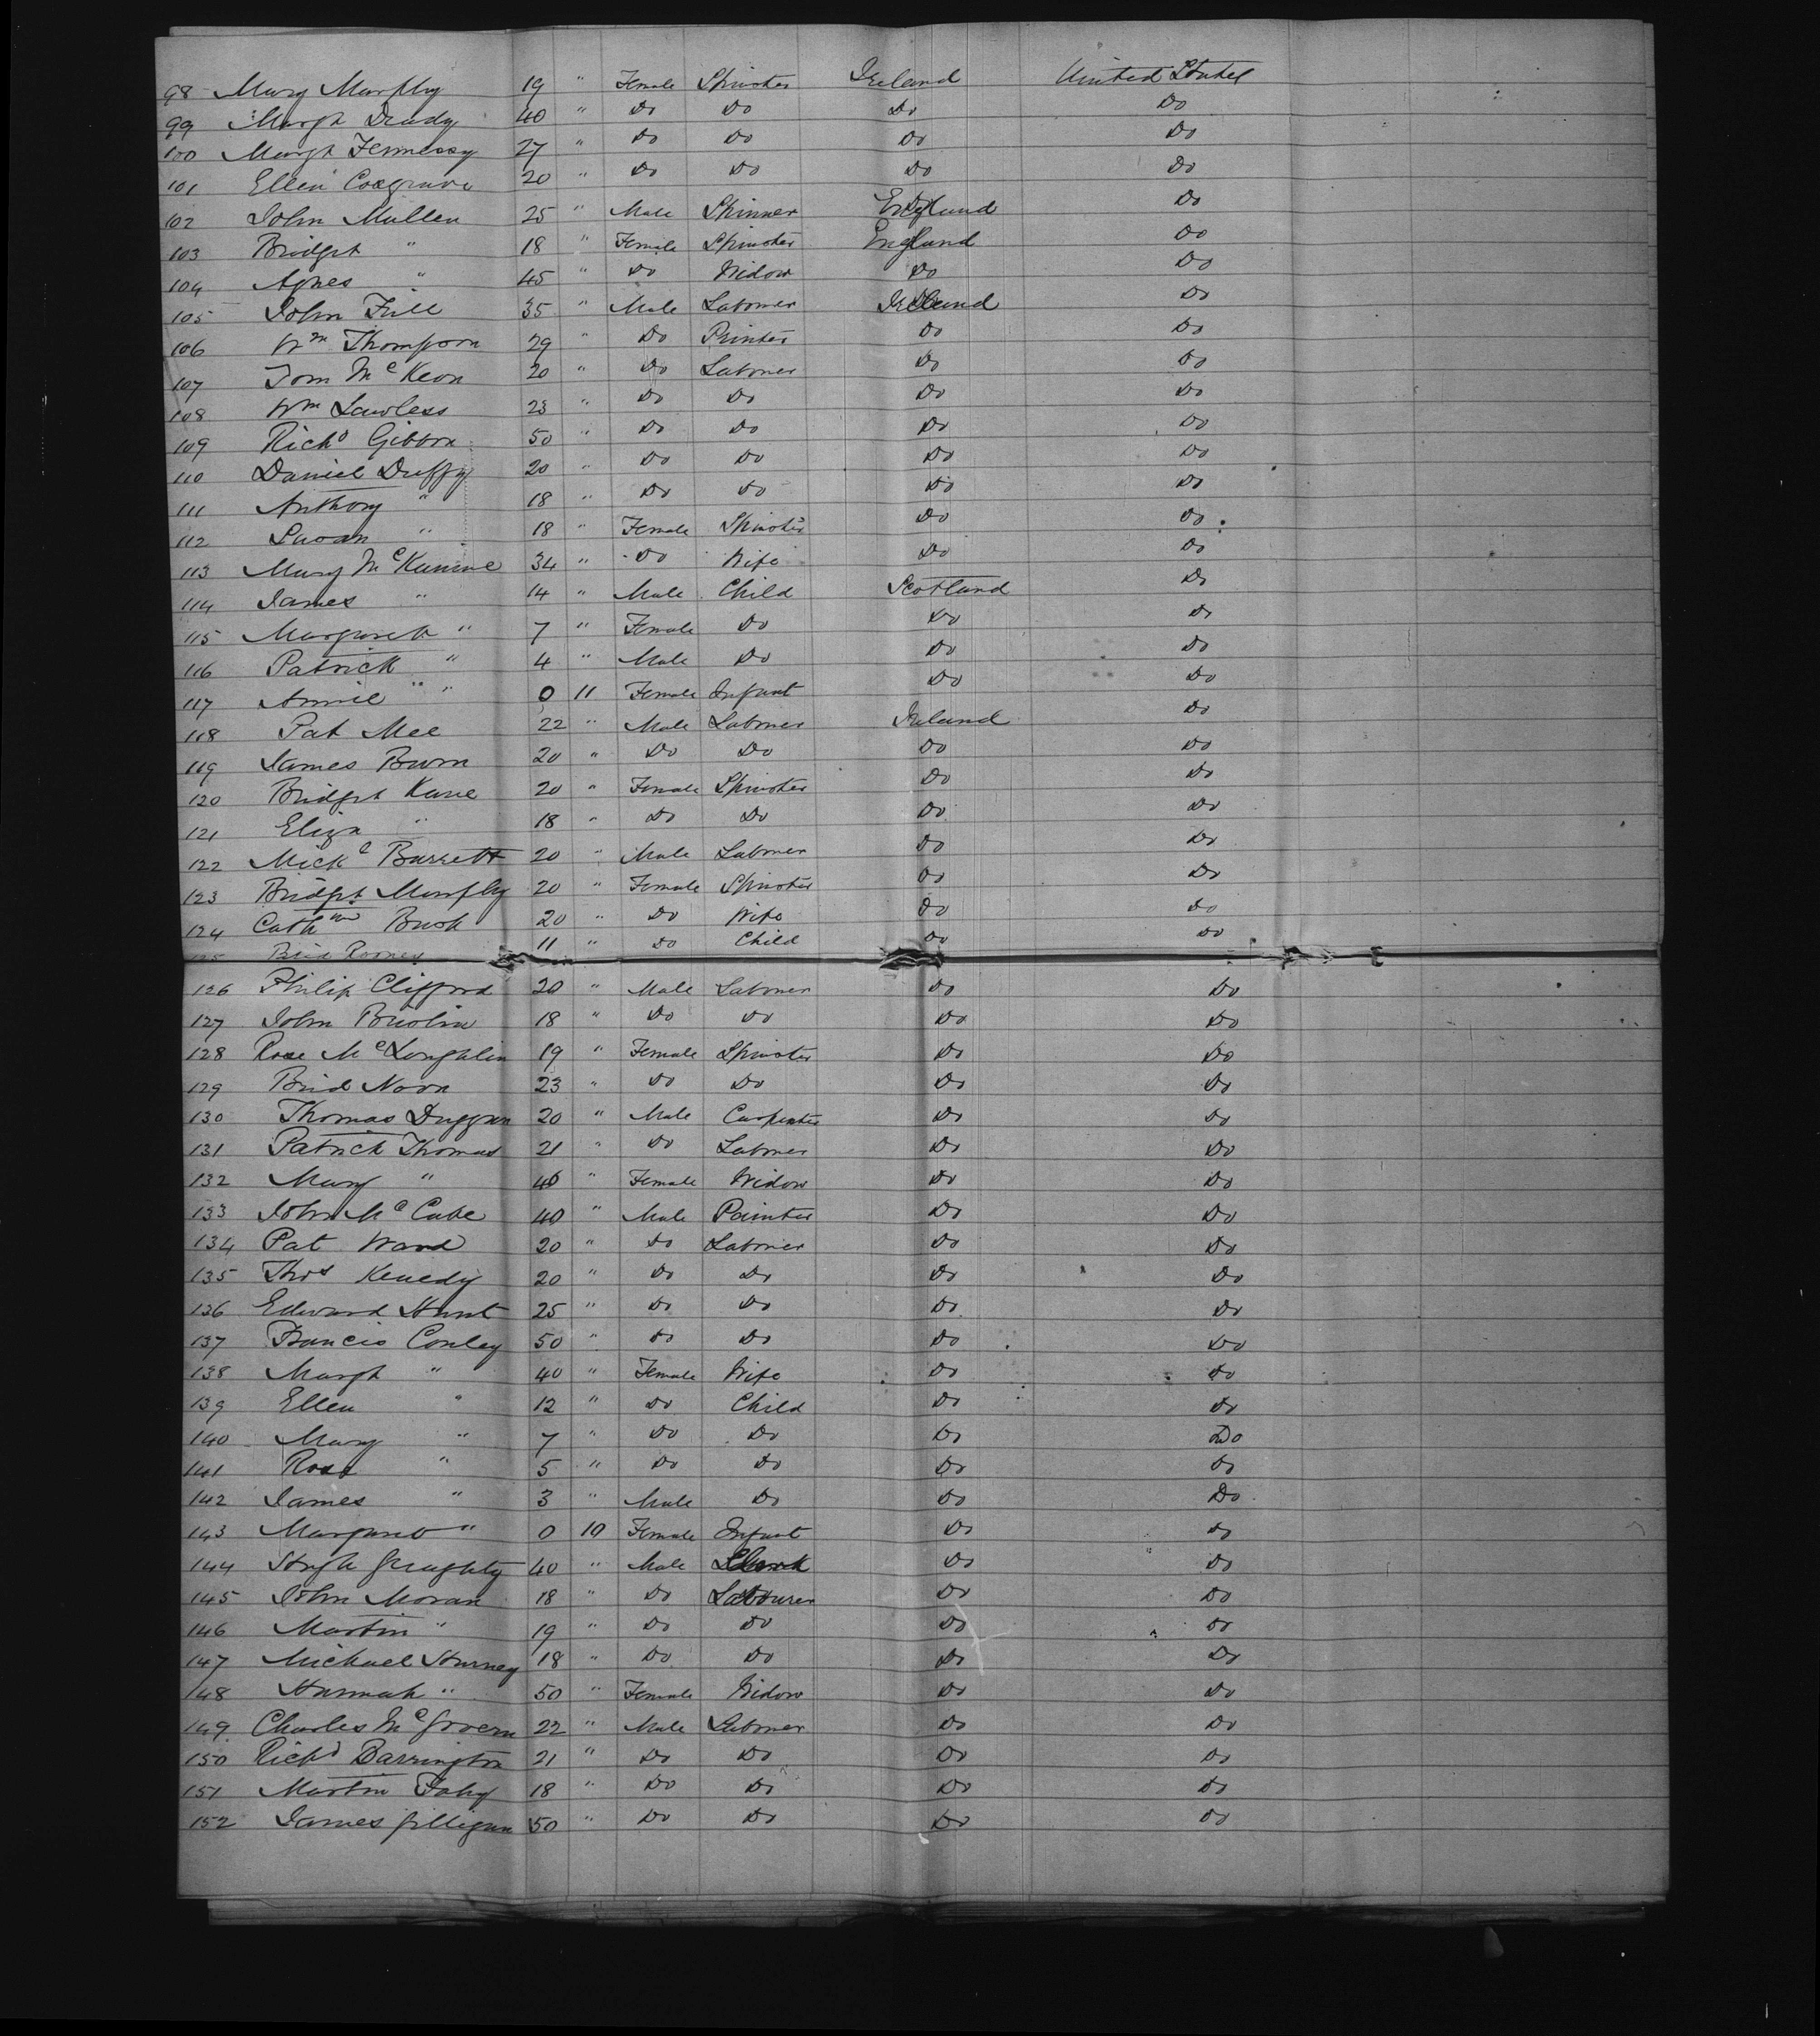 98 Mary Murphy 19 " Female Spinster Ireland United States
99 Margt Deady 40 " Do Do Do Do
100 Margt Fennessy 27 " Do Do Do Do
101 Ellen Cosgrave 20 " Do Do Do Do
102 John Mullen 25 " Male Spinner England Do
103 Bridget " 18 " Female Spinster England Do
104 Agnes " 45 " Do Widow Do Do
105 John 35 " Male Laborer Ireland Do
106 Wm Thompson 29 " Do Printer Do Do
107 Tom McKeon 20 " Do Laborer Do Do
108 Wm Lawless 23 " Do Do Do Do
109 Richd Gibbon 50 " Do Do Do Do
110 Daniel Duffy 20 " Do Do Do Do
111 Anthony " 18 " Do Do Do Do
112 Susan " 18 " Female Spinster Do Do
113 Mary 34 " Do Wife Do Do
114 James " 14 " Male Child Scotland Do
115 Margarett " 7 " Female Do Do Do
116 Patrick " 4 " Male Do Do Do
117 Annie " " 0 11 Female Infant Do Do
118 Pat Mee 22 " Male Laborer Ireland Do
119 James Burn 20 " Do Do Do Do
120 Bridget Kane 20 " Female Spinster Do Do
121 Eliza " 18 " Do Do Do Do
122 Mickl Barrett 20 " Male Laborer Do Do
123 Bridget Murphy 20 " Female Spinster Do Do
124 Cathne Bush 20 " Do Wife Do Do
125 Brid Rooney 11 " Do Child Do Do
126 Philip Clifford 20 " Male Laborer Do Do
127 John 18 " Do Do Do Do
128 Rose McLoughlin 19 " Female Spinster Do Do
129 Brid Noon 23 " Do Do Do Do
130 Thomas Duggan 20 " Male Carpenter Do Do
131 Patrick Thomas 21 " Do Laborer Do Do
132 Mary " 46 " Female Widow Do Do
133 John McCabe 40 " Male Painter Do Do
134 Pat Ward 20 " Do Laborer Do Do
135 Thos Kenedy 20 " Do Do Do Do
136 Edward Hunt 25 " Do Do Do Do
137 Francis Conley 50 " Do Do Do Do
138 Margt " 40 " Female Wife Do Do
139 Ellen " 12 " Do Child Do Do
140 Mary " 7 " Do Do Do Do
141 Rose " 5 " Do Do Do Do
142 James " 3 " Male Do Do Do
143 Margaret " 0 10 Female Infant Do Do
144 Hugh Geraghty 40 " Male Clerk Do Do
145 John Moran 18 " Do Labourer Do Do
146 Martin " 19 " Do Do Do Do
147 Michael Hurney 18 " Do Do Do Do
148 Hannah " 50 " Female Widow Do Do
149 Charles McGovern 22 " Male Laborer Do Do
150 Richd Barrington 21 " Do Do Do Do
151 Martin Fahy 18 " Do Do Do Do
152 James Gilligan 50 " Do Do Do Do